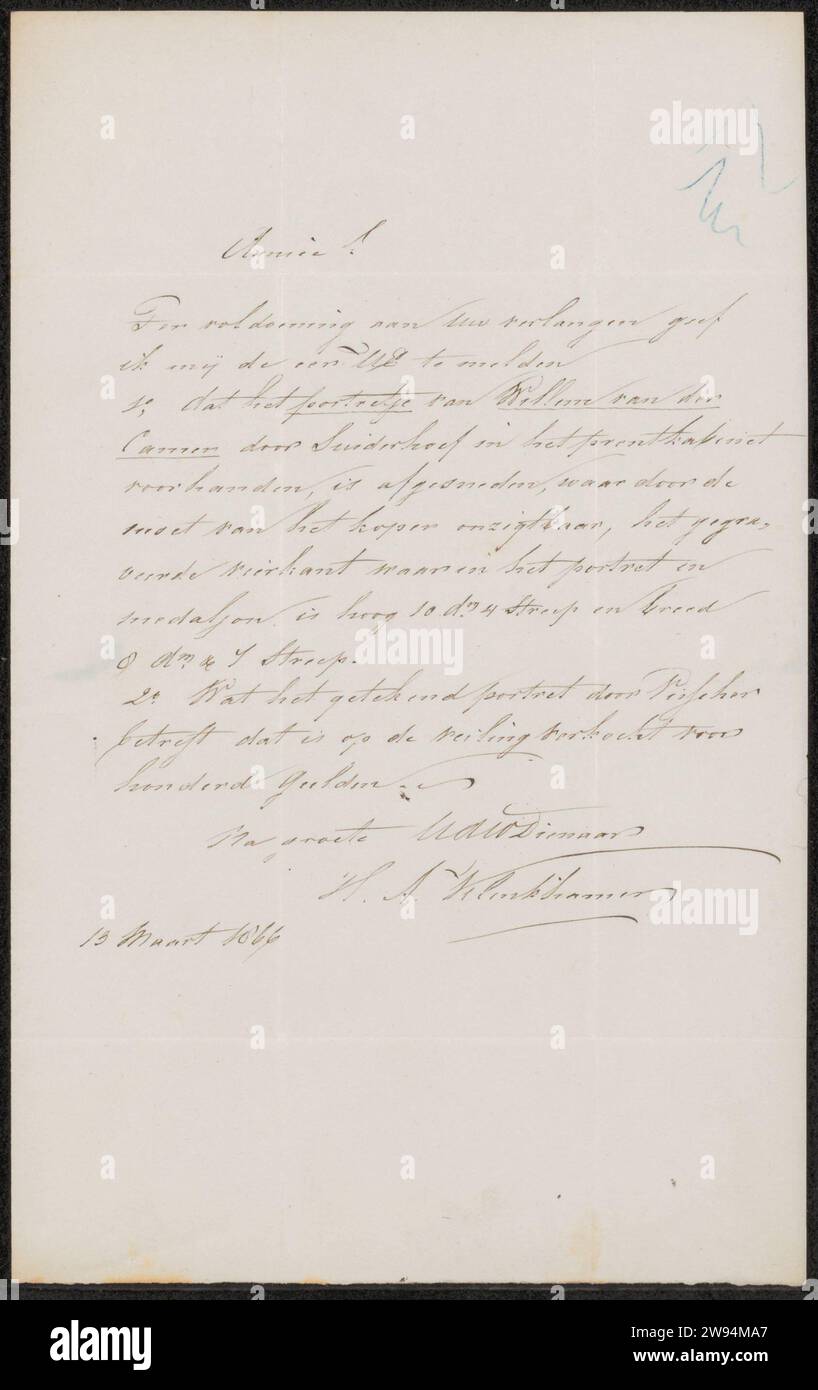 Amice!
Ter voldoening aan Uw verlangen geef
ik mij de eer UE te melden
1o, dat het portretje van Willem van der
Camer door Suiderhoef in het prentkabinet
voorhanden, is afgesneden, waardoor de
moet van het koper onzigtbaar, het gegra-
veerde vierkant waarin het portret en
medaljon is hoog 10 dm 4 Streep en breed
8 dm & 7 Streep.
2o Wat het getekend portret door Visscher
betreft dat is op de veiling verkocht voor
honderd Gulden.
Na groete UdWDienaar
H. A. Klinkhamer
13 Maart 1866
alamy
alamy
Image ID: 2W94MA7
www.alamy.com